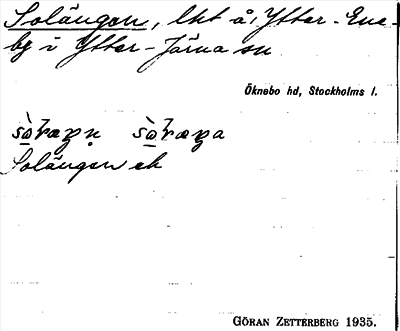 Solängen, lht å, Ytter-Ene-
by i Ytter-Järna sn
Öknebo hd, Stockholms l.
Solängen ek
GÖRAN ZETTERBERG 1935.